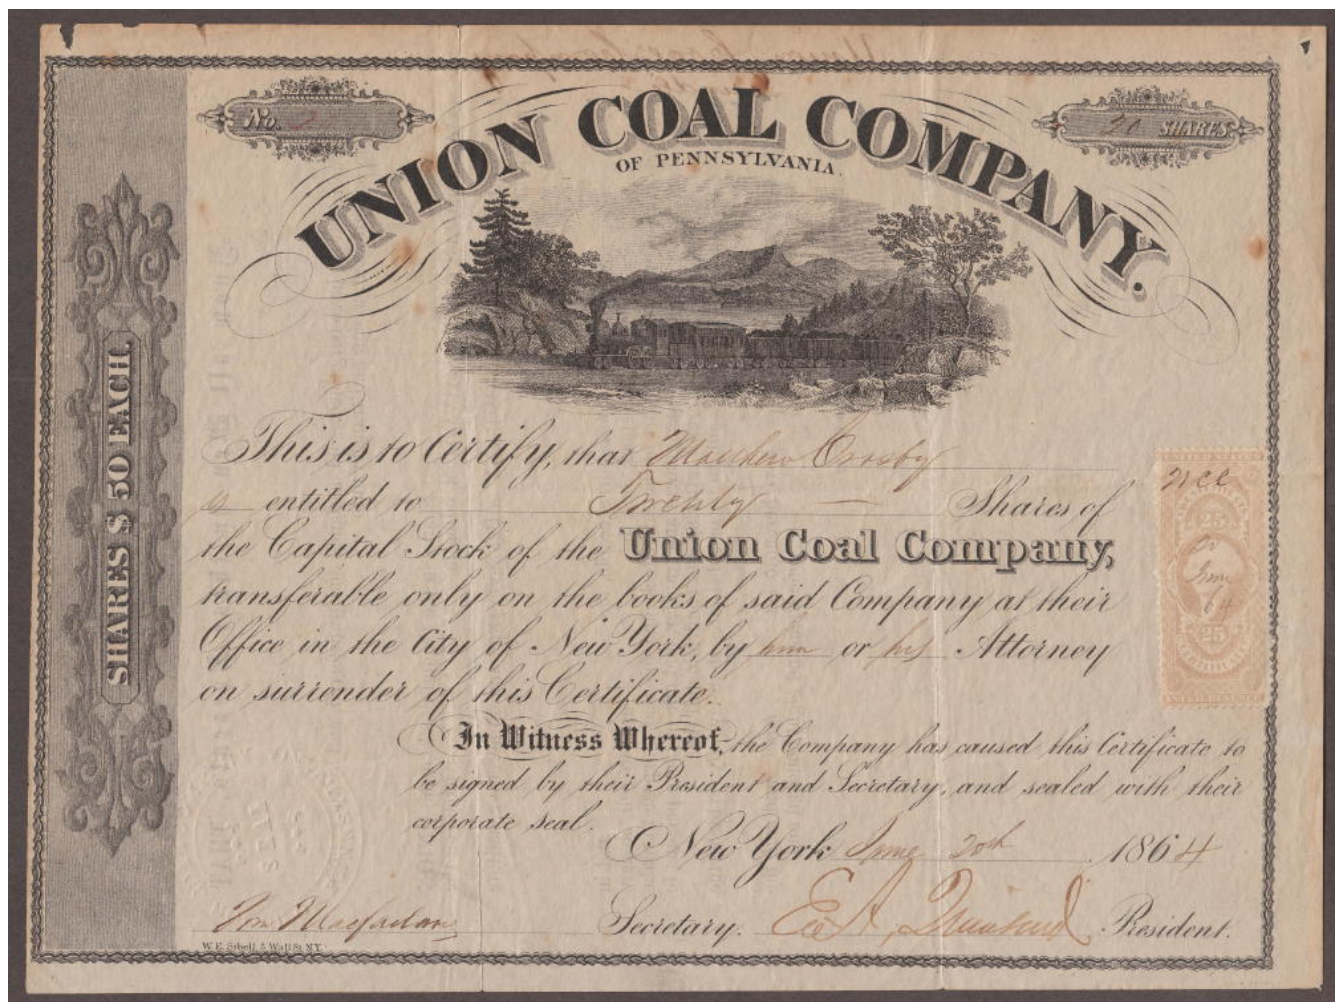 No. 2
20 SHARES
UNION COAL COMPANY.
OF PENNSYLVANIA.
SHARES $ 50 EACH.
This is to Certify, that Matthew Crosby
is entitled to Twenty Shares of
the Capital Stock of the Union Coal Company,
transferable only on the books of said Company at their
Office in the City of New York, by him or his Attorney
on surrender of this Certificate.
25
June
64
25
CERTIFICATE
In Witness Whereof, the Company has caused this Certificate to
be signed by their President and Secretary, and sealed with their
corporate seal.
New York June 20th 1864
Wm Macfarlan Secretary. President.
W.E. Sibell, 5 Wall St. N.Y.